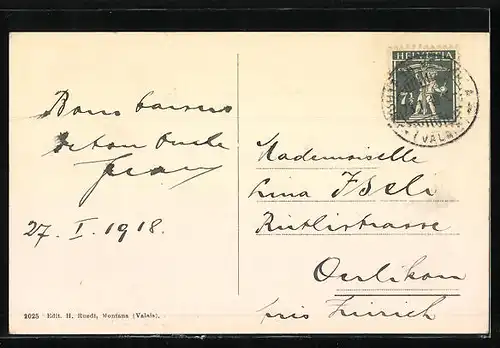 Bons baisers
de ton oncle
Jean
27. I. 1918.
HELVETIA
7½
(VALAIS)
Mademoiselle
Lina Iseli
Rütlistrasse
Oerlikon
près Zürich
2025 Edit. H. Ruedi, Montana (Valais).